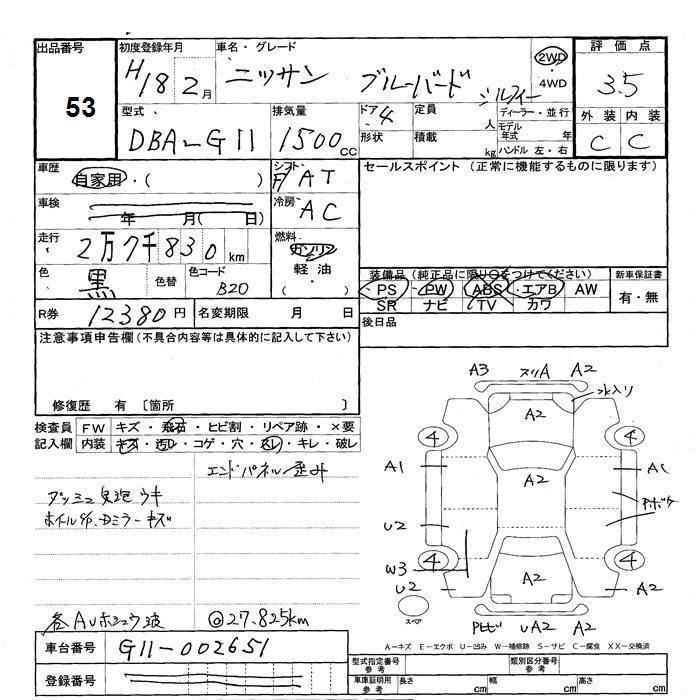 出品番号
53
初度登録年月
H18 2月
車名・グレード
ニッサン ブルーバード シルフィー
2WD
・
4WD
評価点
3.5
型式
DBA-G11
排気量
1500cc
ドア 4
形状
定員 人
積載 kg
ディーラー・並行
モデル年式 年
ハンドル 左・右
外装 内装
C C
車歴
自家用・( )
シフト
F AT
セールスポイント (正常に機能するものに限ります)
車検
年 月( 日)
冷房
AC
走行
2万7千830km
燃料
ガソリン
軽油
・( )
色
黒
色替
色コード
B20
装備品(純正品に限り○をつけてください)
PS PW ABS エアB AW
SR ナビ TV カワ
新車保証書
有・無
R券 12380円
名変期限 月 日
後日品
注意事項申告欄(不具合内容等は具体的に記入して下さい)
修復歴 有〔箇所 〕
検査員記入欄
FW キズ・飛石・ヒビ割・リペア跡・×要
内装 キズ・汚レ・コゲ・穴・スレ・キレ・破レ
エンドパネル歪み
ダッシュ 気泡 ウキ
キズ
各AUホコウ波
@27.825km
A3 スリA A2
水入り
A2
4 4
A1 A2 A1
U2
4 4
W3 A2
U2 A2
スペア
UA2 A2
A－キズ E－エクボ U－凹み W－補修跡 S－サビ C－腐食 XX－交換済
車台番号 G11-002651
登録番号
型式指定番号 参考
類別区分番号 参考
車庫証明用 参考
長さ cm
幅 cm
高さ cm